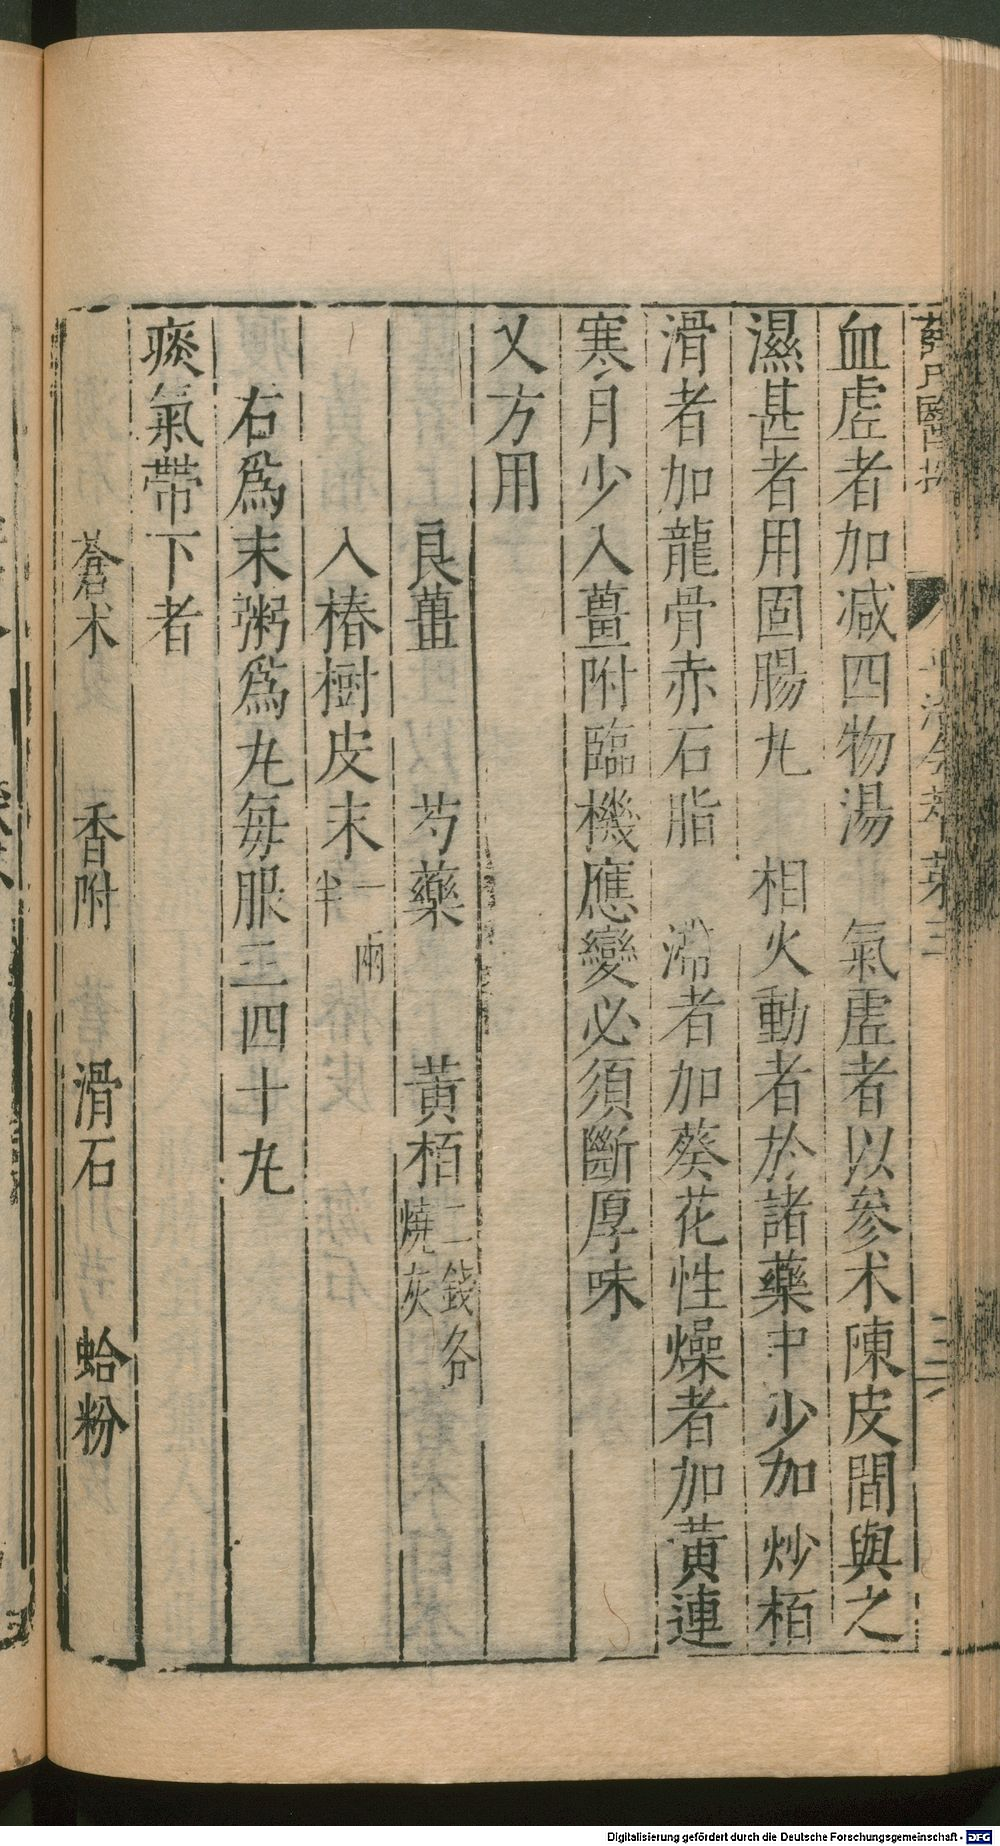 血虛者加減四物湯 氣虛者以參术陳皮間與之
濕甚者用固腸丸 相火動者於諸藥中少加 炒栢
滑者加龍骨赤石脂 滯者加葵花性燥者加黃連
寒月少入薑附臨機應變必須斷厚味
又方用
良薑 芍藥 黃栢 二錢各燒灰
入椿樹皮末 一兩半
右為末粥為丸每服三四十丸
痰氣帶下者
蒼术 香附 滑石 蛤粉
Digitalisierung gefördert durch die Deutsche Forschungsgemeinschaft - DFG